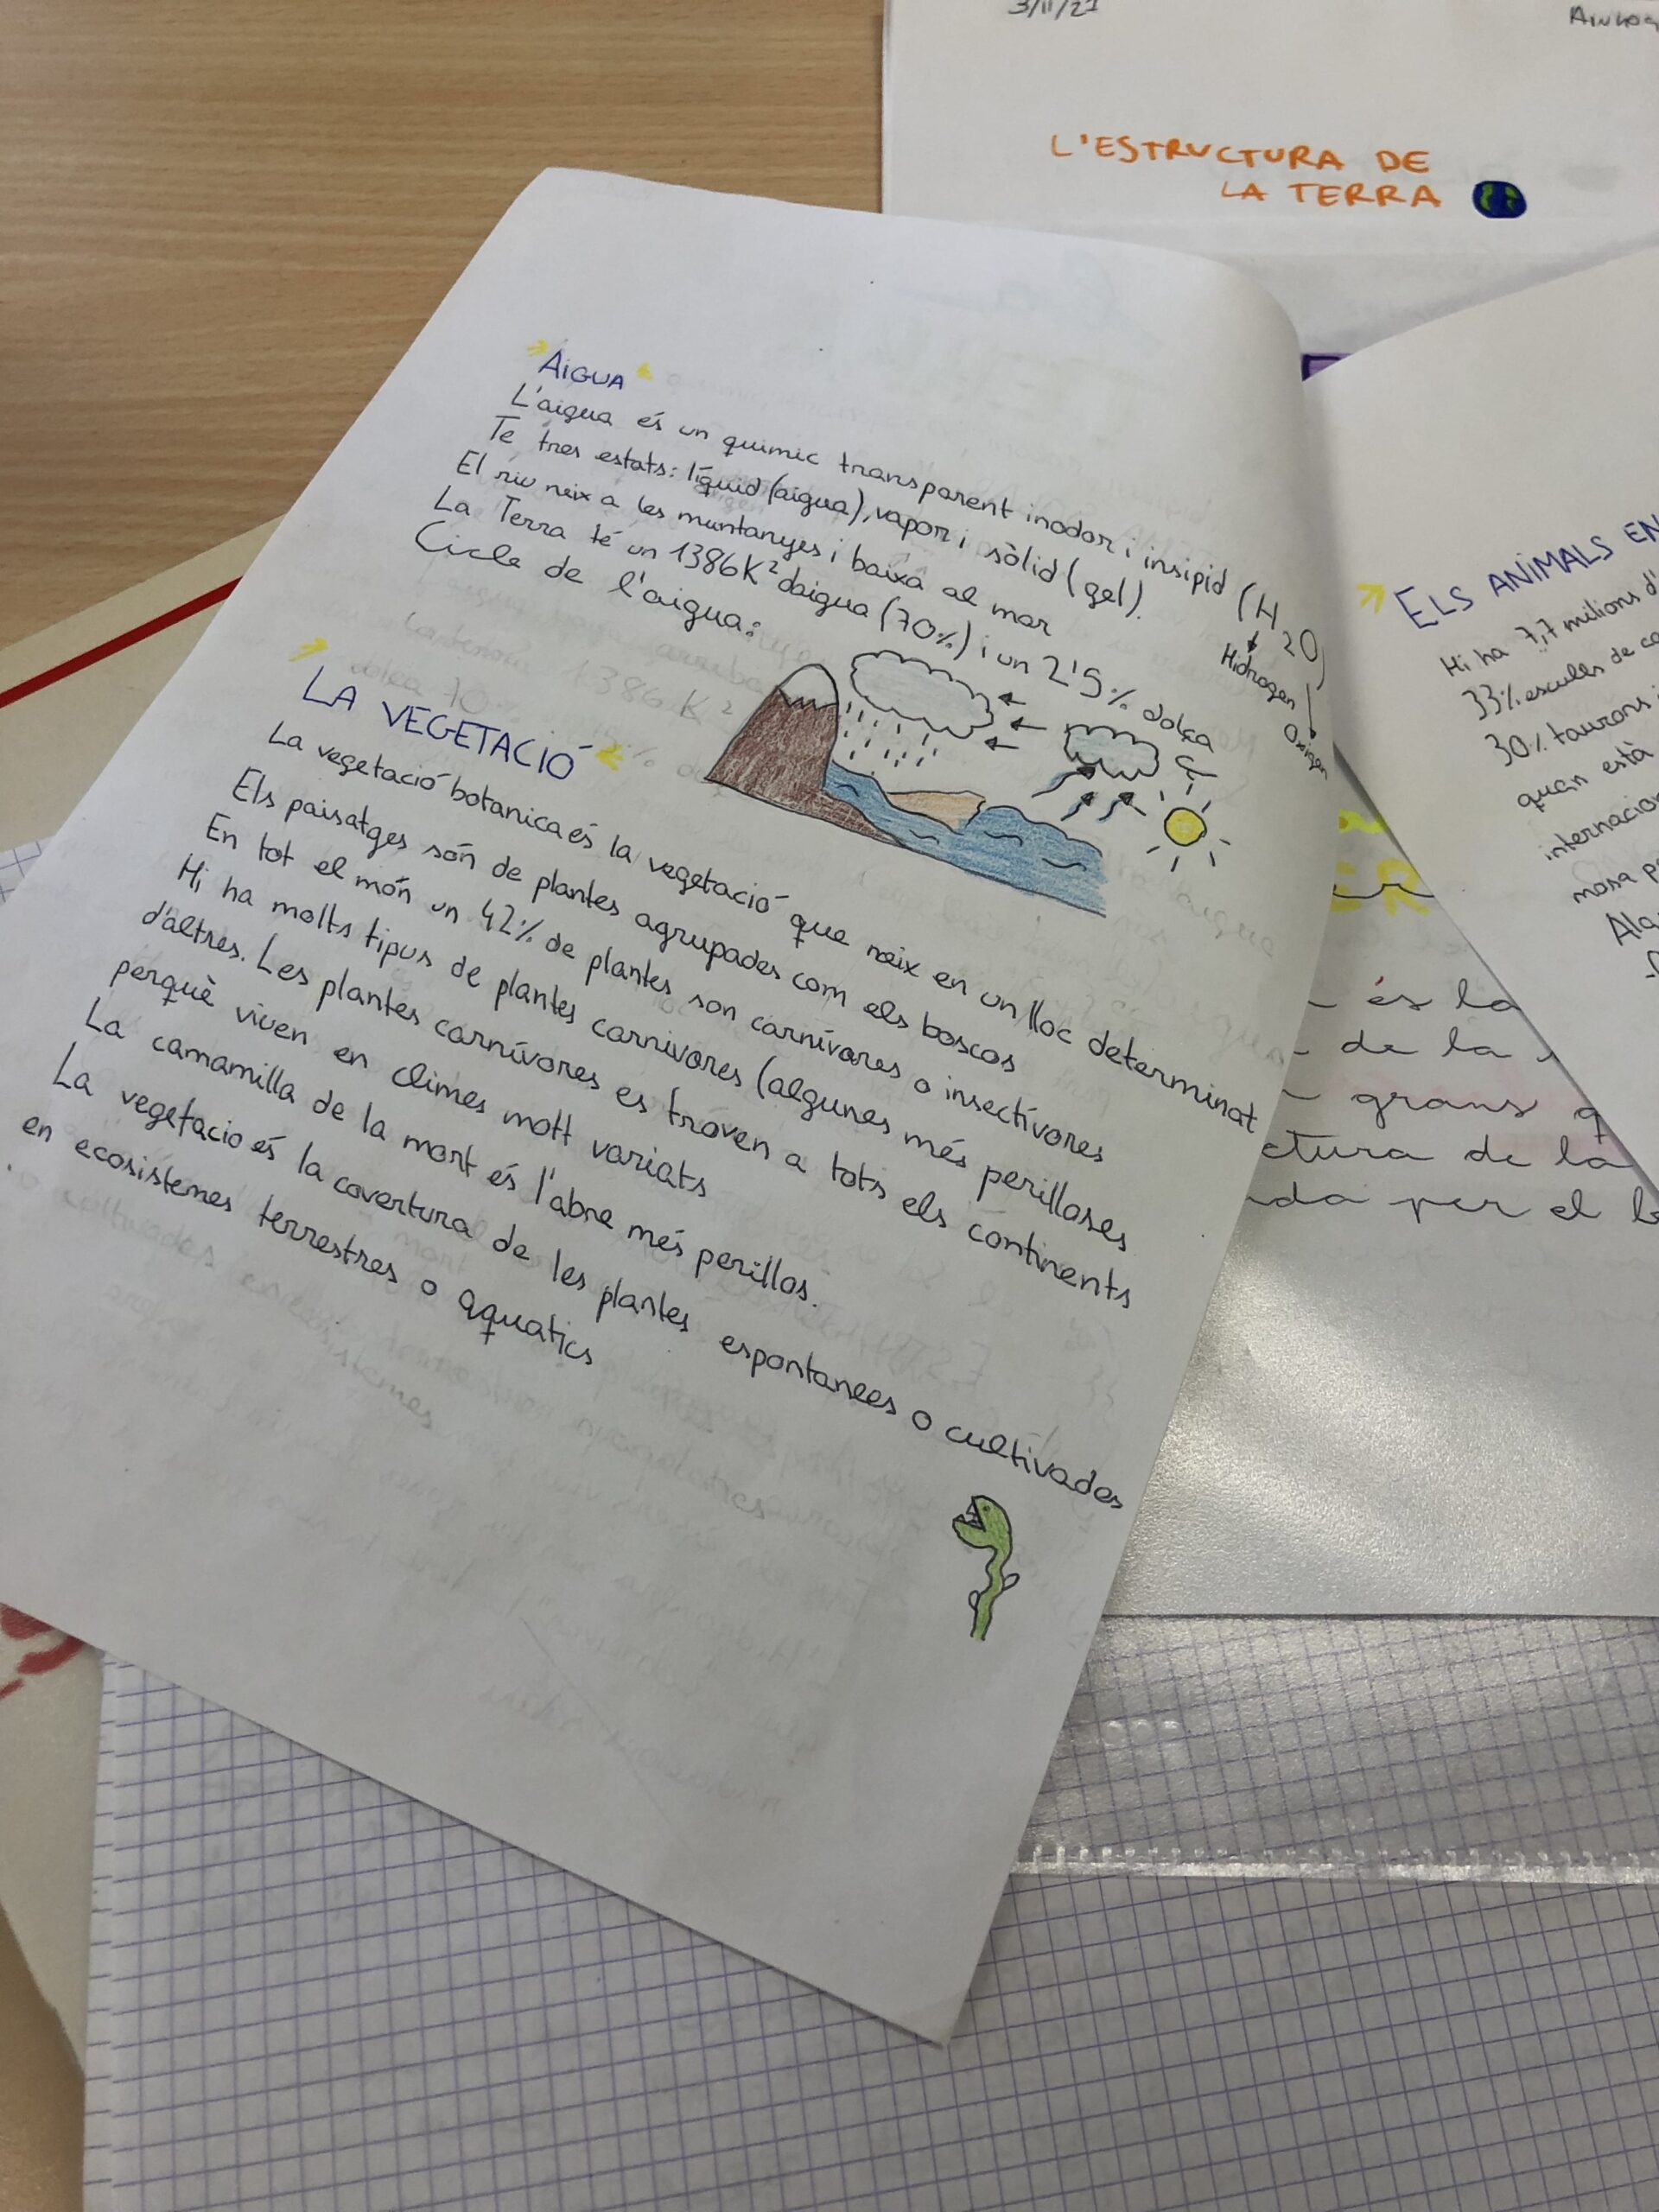 3/11/21
L'ESTRUCTURA DE
LA TERRA
AIGUA
L'aigua és un quimic transparent inodor i insipid (H2O)
Hidrogen
Oxigen
Te tres estats: líquid (aigua), vapor i sòlid (gel).
El riu neix a les muntanyes i baixa al mar
La Terra té un 1386K² daigua (70%) i un 2'5% dolça
Cicle de l'aigua:
LA VEGETACIÓ
La vegetació botanica és la vegetació que neix en un lloc determinat
Els paisatges són de plantes agrupades com els boscos
En tot el món un 42% de plantes son carnívores o insectívores
Hi ha molts tipus de plantes carnivores (algunes més perilloses
d'altres. Les plantes carnívores es troven a tots els continents
perquè viuen en climes mott variats
La camamilla de la mort és l'abre més perillos.
La vegetacio és la covertura de les plantes espontanees o cultivades
en ecosistemes terrestres o aquatics
ELS ANIMALS EN
Hi ha 7,7 milions d'
33% esculls de co
30% taurons i
quan està
internacion
mosa p
Ala
és la
de la
grans q
ctura de la
da per el